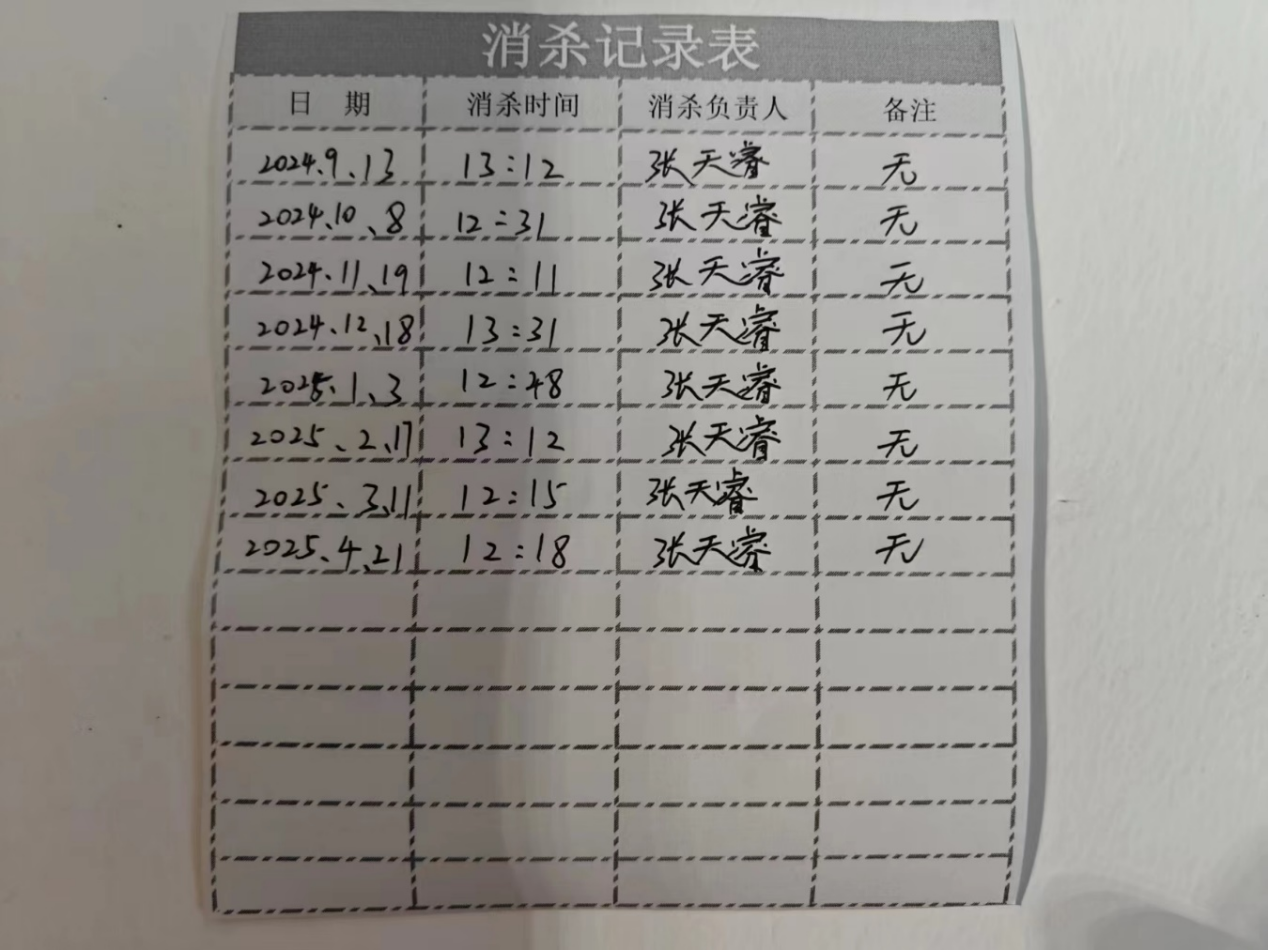 消杀记录表
日 期 消杀时间 消杀负责人 备注
2024.9.13 13:12 张天睿 无
2024.10.8 12:31 张天睿 无
2024.11.19 12:11 张天睿 无
2024.12.18 13:31 张天睿 无
2025.1.3 12:48 张天睿 无
2025.2.17 13:12 张天睿 无
2025.3.11 12:15 张天睿 无
2025.4.21 12:18 张天睿 无